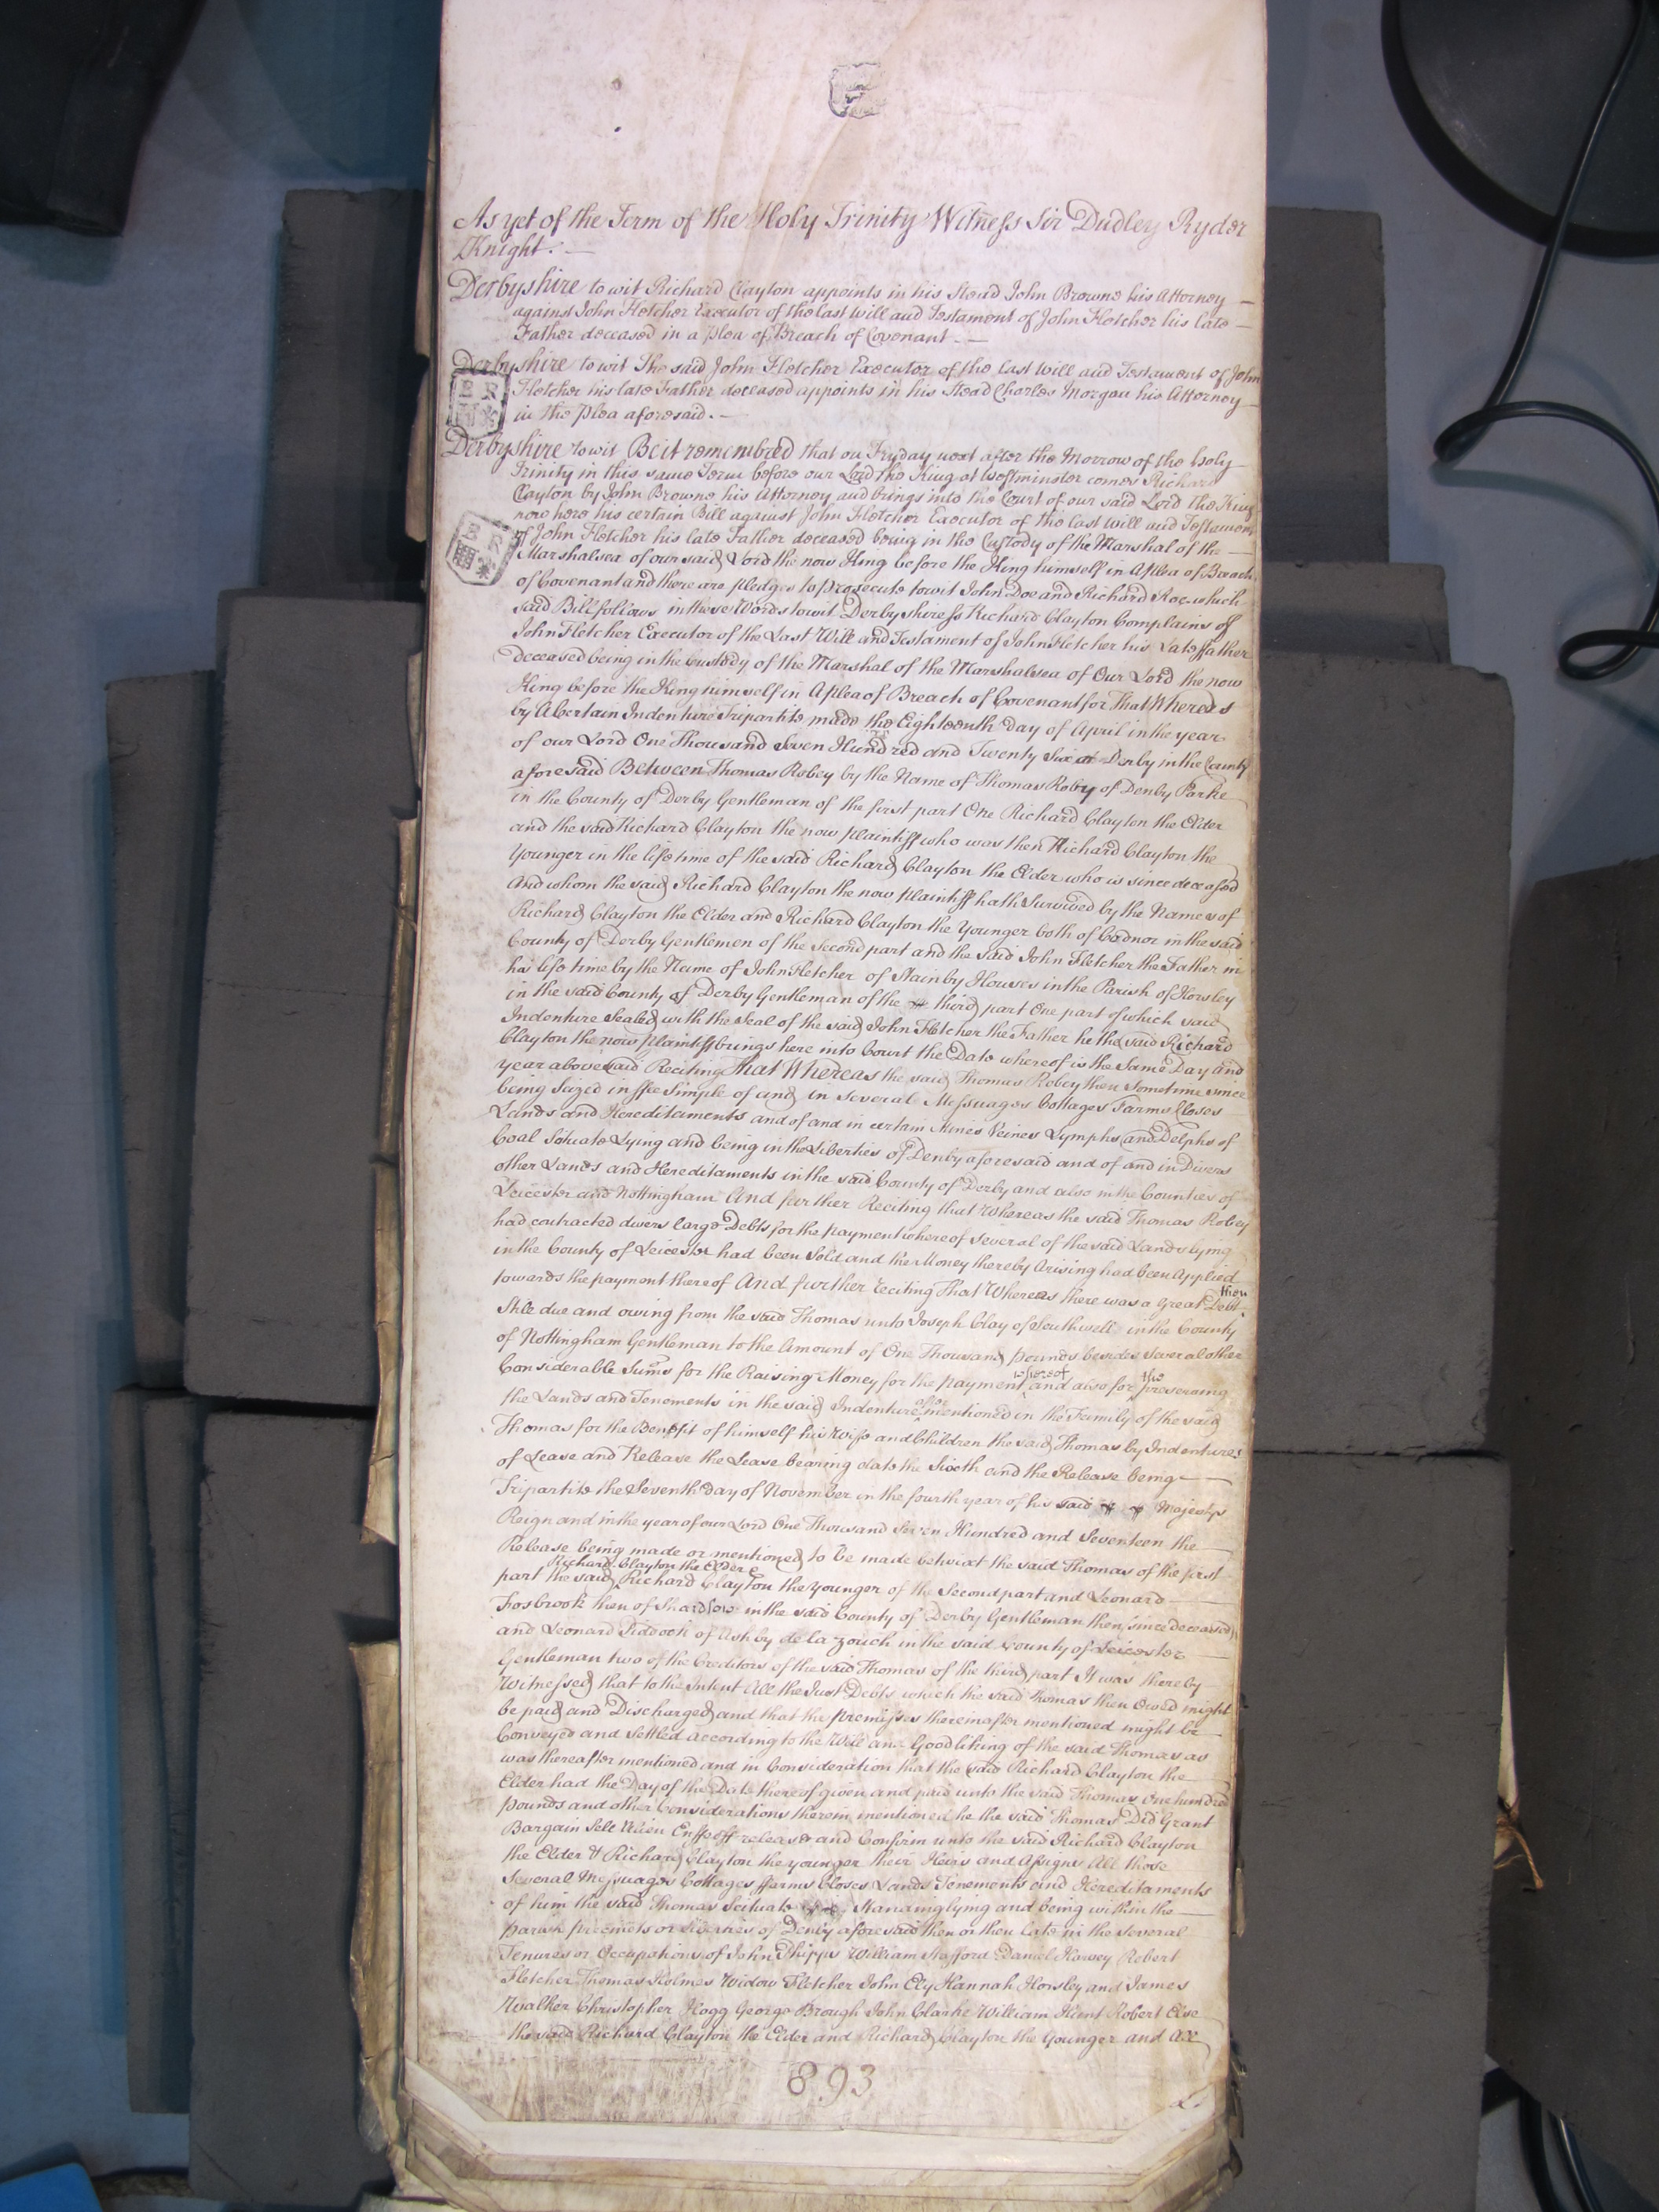 As yet of the Term of the Holy Trinity Witness Sir Dudley Ryder
Knight. —
Derbyshire to wit Richard Clayton appoints in his Stead John Browne his Attorney —
against John Fletcher Executor of the last Will and Testament of John Fletcher his late —
Father deceased in a Plea of Breach of Covenant. —
Derbyshire to wit The said John Fletcher Executor of the last Will and Testament of John
Fletcher his late Father deceased appoints in his Stead Charles Morgan his Attorney
in the Plea aforesaid. —
Derbyshire to wit Be it remembred that on Fryday next after the Morrow of the Holy
Trinity in this same Term before our Lord the King at Westminster comes Richard
Clayton by John Browne his Attorney and brings into the Court of our said Lord the King
now here his certain Bill against John Fletcher Executor of the last Will and Testament
of John Fletcher his late Father deceased being in the Custody of the Marshal of the —
Marshalsea of our said Lord the now King before the King himself in A Plea of Breach
of Covenant and there are pledges to prosecute to wit John Doe and Richard Roe which
said Bill follows in these Words to wit Derbyshire ss Richard Clayton Complains of
John Fletcher Executor of the Last Will and Testament of John Fletcher his Late ffather
deceased being in the Custody of the Marshal of the Marshalsea of Our Lord the now
King before the King himself in A Plea of Breach of Covenant for That Whereas
by A Certain Indenture Tripartite made the Eighteenth Day of April in the year
of our Lord One Thousand Seven Hundred and Twenty Six at Derby in the County
aforesaid Between Thomas Robey by the Name of Thomas Roby of Denby Parke
in the County of Derby Gentleman of the first part One Richard Clayton the Elder
and the said Richard Clayton the now plaintiff who was then Richard Clayton the
Younger in the life time of the said Richard Clayton the Elder who is since deceased
And whom the said Richard Clayton the now plaintiff hath Survived by the Names of
Richard Clayton the Elder and Richard Clayton the Younger both of Codnor in the said
County of Derby Gentlemen of the Second part and the said John Fletcher the Father in
his life time by the Name of John Fletcher of Stainby Houses in the Parish of Horsley
in the said County of Derby Gentleman of the third part One part of which said
Indenture Sealed with the Seal of the said John Fletcher the Father he the said Richard
Clayton the now plaintiff brings here into Court the Date whereof is the Same Day and
year abovesaid Reciting That Whereas the said Thomas Robey then Sometime since
being Seized in ffee Simple of and in Several Messuages Cottages Farms Closes
Lands and Hereditaments and of and in certain Mines Veines Lymphs and Delphs of
Coal Scituate Lying and being in the Liberties of Denby aforesaid and of and in Divers
other Lands and Hereditaments in the said County of Derby and also in the Counties of
Leicester and Nottingham And further Reciting that Whereas the said Thomas Robey
had contracted divers large Debts for the payment whereof Several of the said Lands lying
in the County of Leicester had been Sold and the Money thereby Arising had been Applied
towards the payment thereof And further Reciting That Whereas there was a Great Debt then
Still due and owing from the said Thomas unto Joseph Clay of Southwell in the County
of Nottingham Gentleman to the Amount of One Thousand pounds besides Several other
Considerable Sums for the Raising Money for the payment whereof and also for the preserving
the Lands and Tenements in the said Indenture after mentioned in the Family of the said
Thomas for the Benefit of himself his Wife and Children the said Thomas by Indentures
of Lease and Release the Lease bearing date the Sixth and the Release being —
Tripartite the Seventh Day of November in the fourth year of his said Majestys
Reign and in the year of our Lord One Thousand Seven Hundred and Seventeen the —
Release being made or mentioned to be made betwixt the said Thomas of the first
part the said Richard Clayton the Elder & Richard Clayton the younger of the Second part and Leonard —
Fosbrook then of Shardlow in the said County of Derby Gentleman then since deceased
and Leonard Piddock of Ashby de la zouch in the said County of Leicester —
Gentleman two of the Creditors of the said Thomas of the third part It was thereby
Witnessed that to the Intent All the Just Debts which the said Thomas then Owed might
be paid and Discharged and that the premisses thereinafter mentioned might be
Conveyed and Settled according to the Will and Good liking of the said Thomas as
was thereafter mentioned and in Consideration that the said Richard Clayton the
Elder had the Day of the Date thereof given and paid unto the said Thomas One hundred
pounds and other Considerations therein mentioned he the said Thomas Did Grant
Bargain Sell Alien Enffeoff release and Confirm unto the said Richard Clayton
the Elder & Richard Clayton the younger their Heirs and Assigns All those
Several Messuages Cottages ffarms Closes Lands Tenements and Hereditaments
of him the said Thomas Scituate Standing lying and being within the —
parish precincts or liberties of Denby aforesaid then or then late in the several
Tenures or Occupations of John Phipps William Stafford Daniel Harvey Robert
Fletcher Thomas Holmes Widow Fletcher John Ely Hannah Horsley and James
Walker Christopher Hogg George Brough John Clarke William Hunt Robert Else
the said Richard Clayton the Elder and Richard Clayton the Younger and All
893